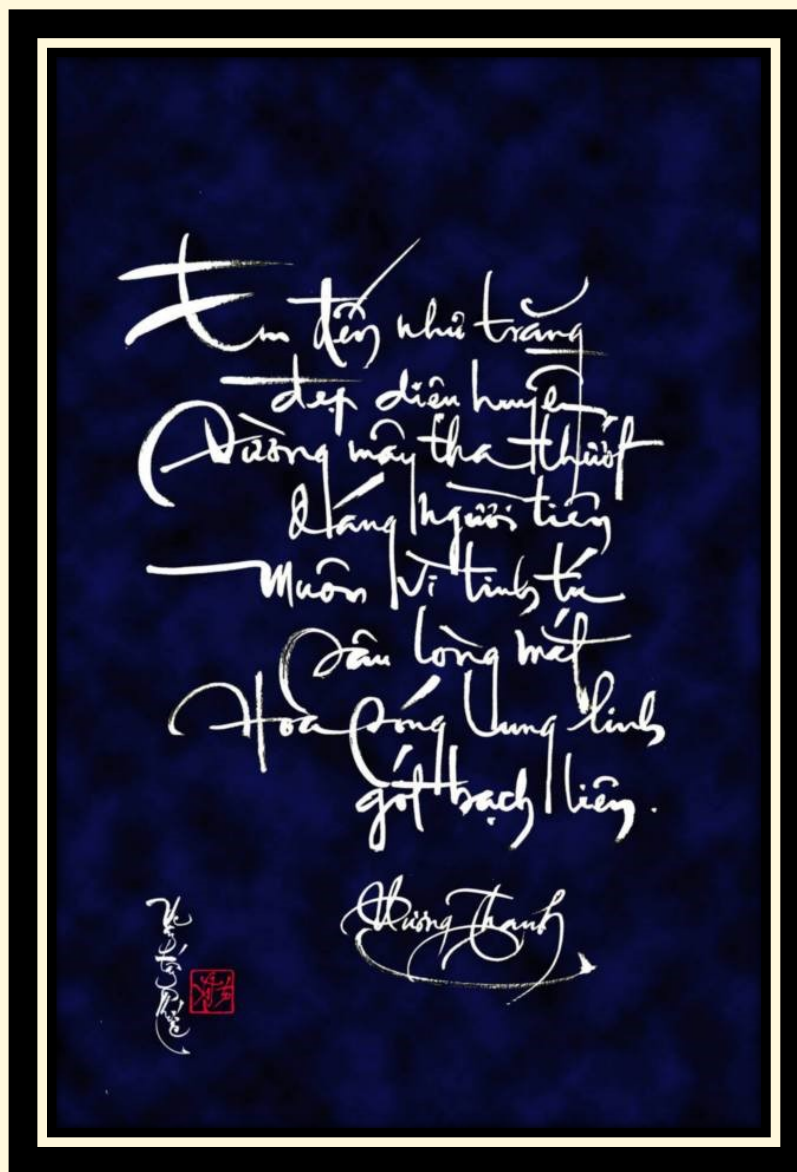 Em đến như trăng
đẹp diệu huyền
Đường mây tha thướt
Dáng người tiên
Muôn vì tinh tú
Sâu lòng mắt
Hoà sóng lung linh
gót bạch liên.
Thanh